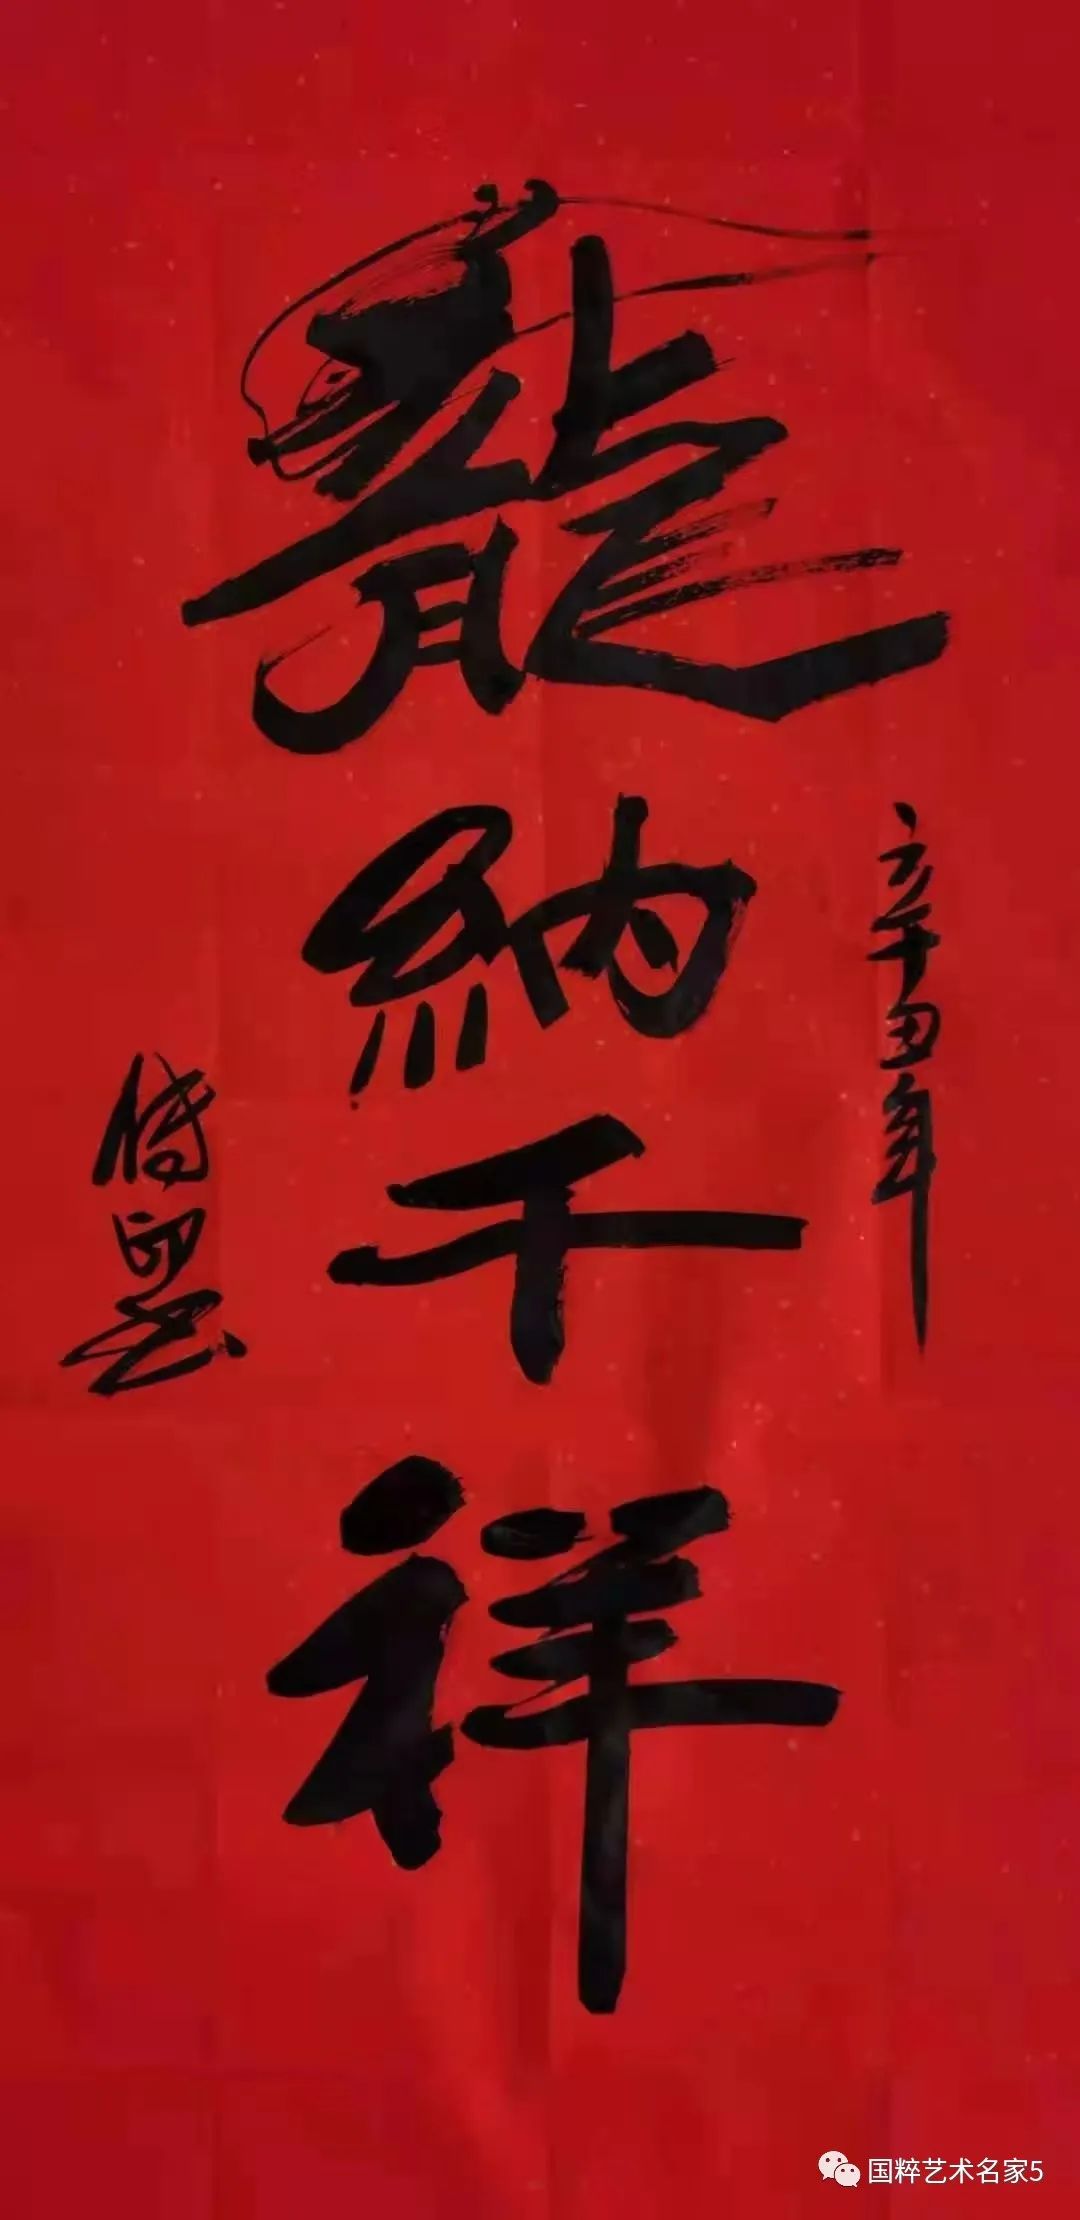 辛丑年
龍納千祥
傅
国粹艺术名家5